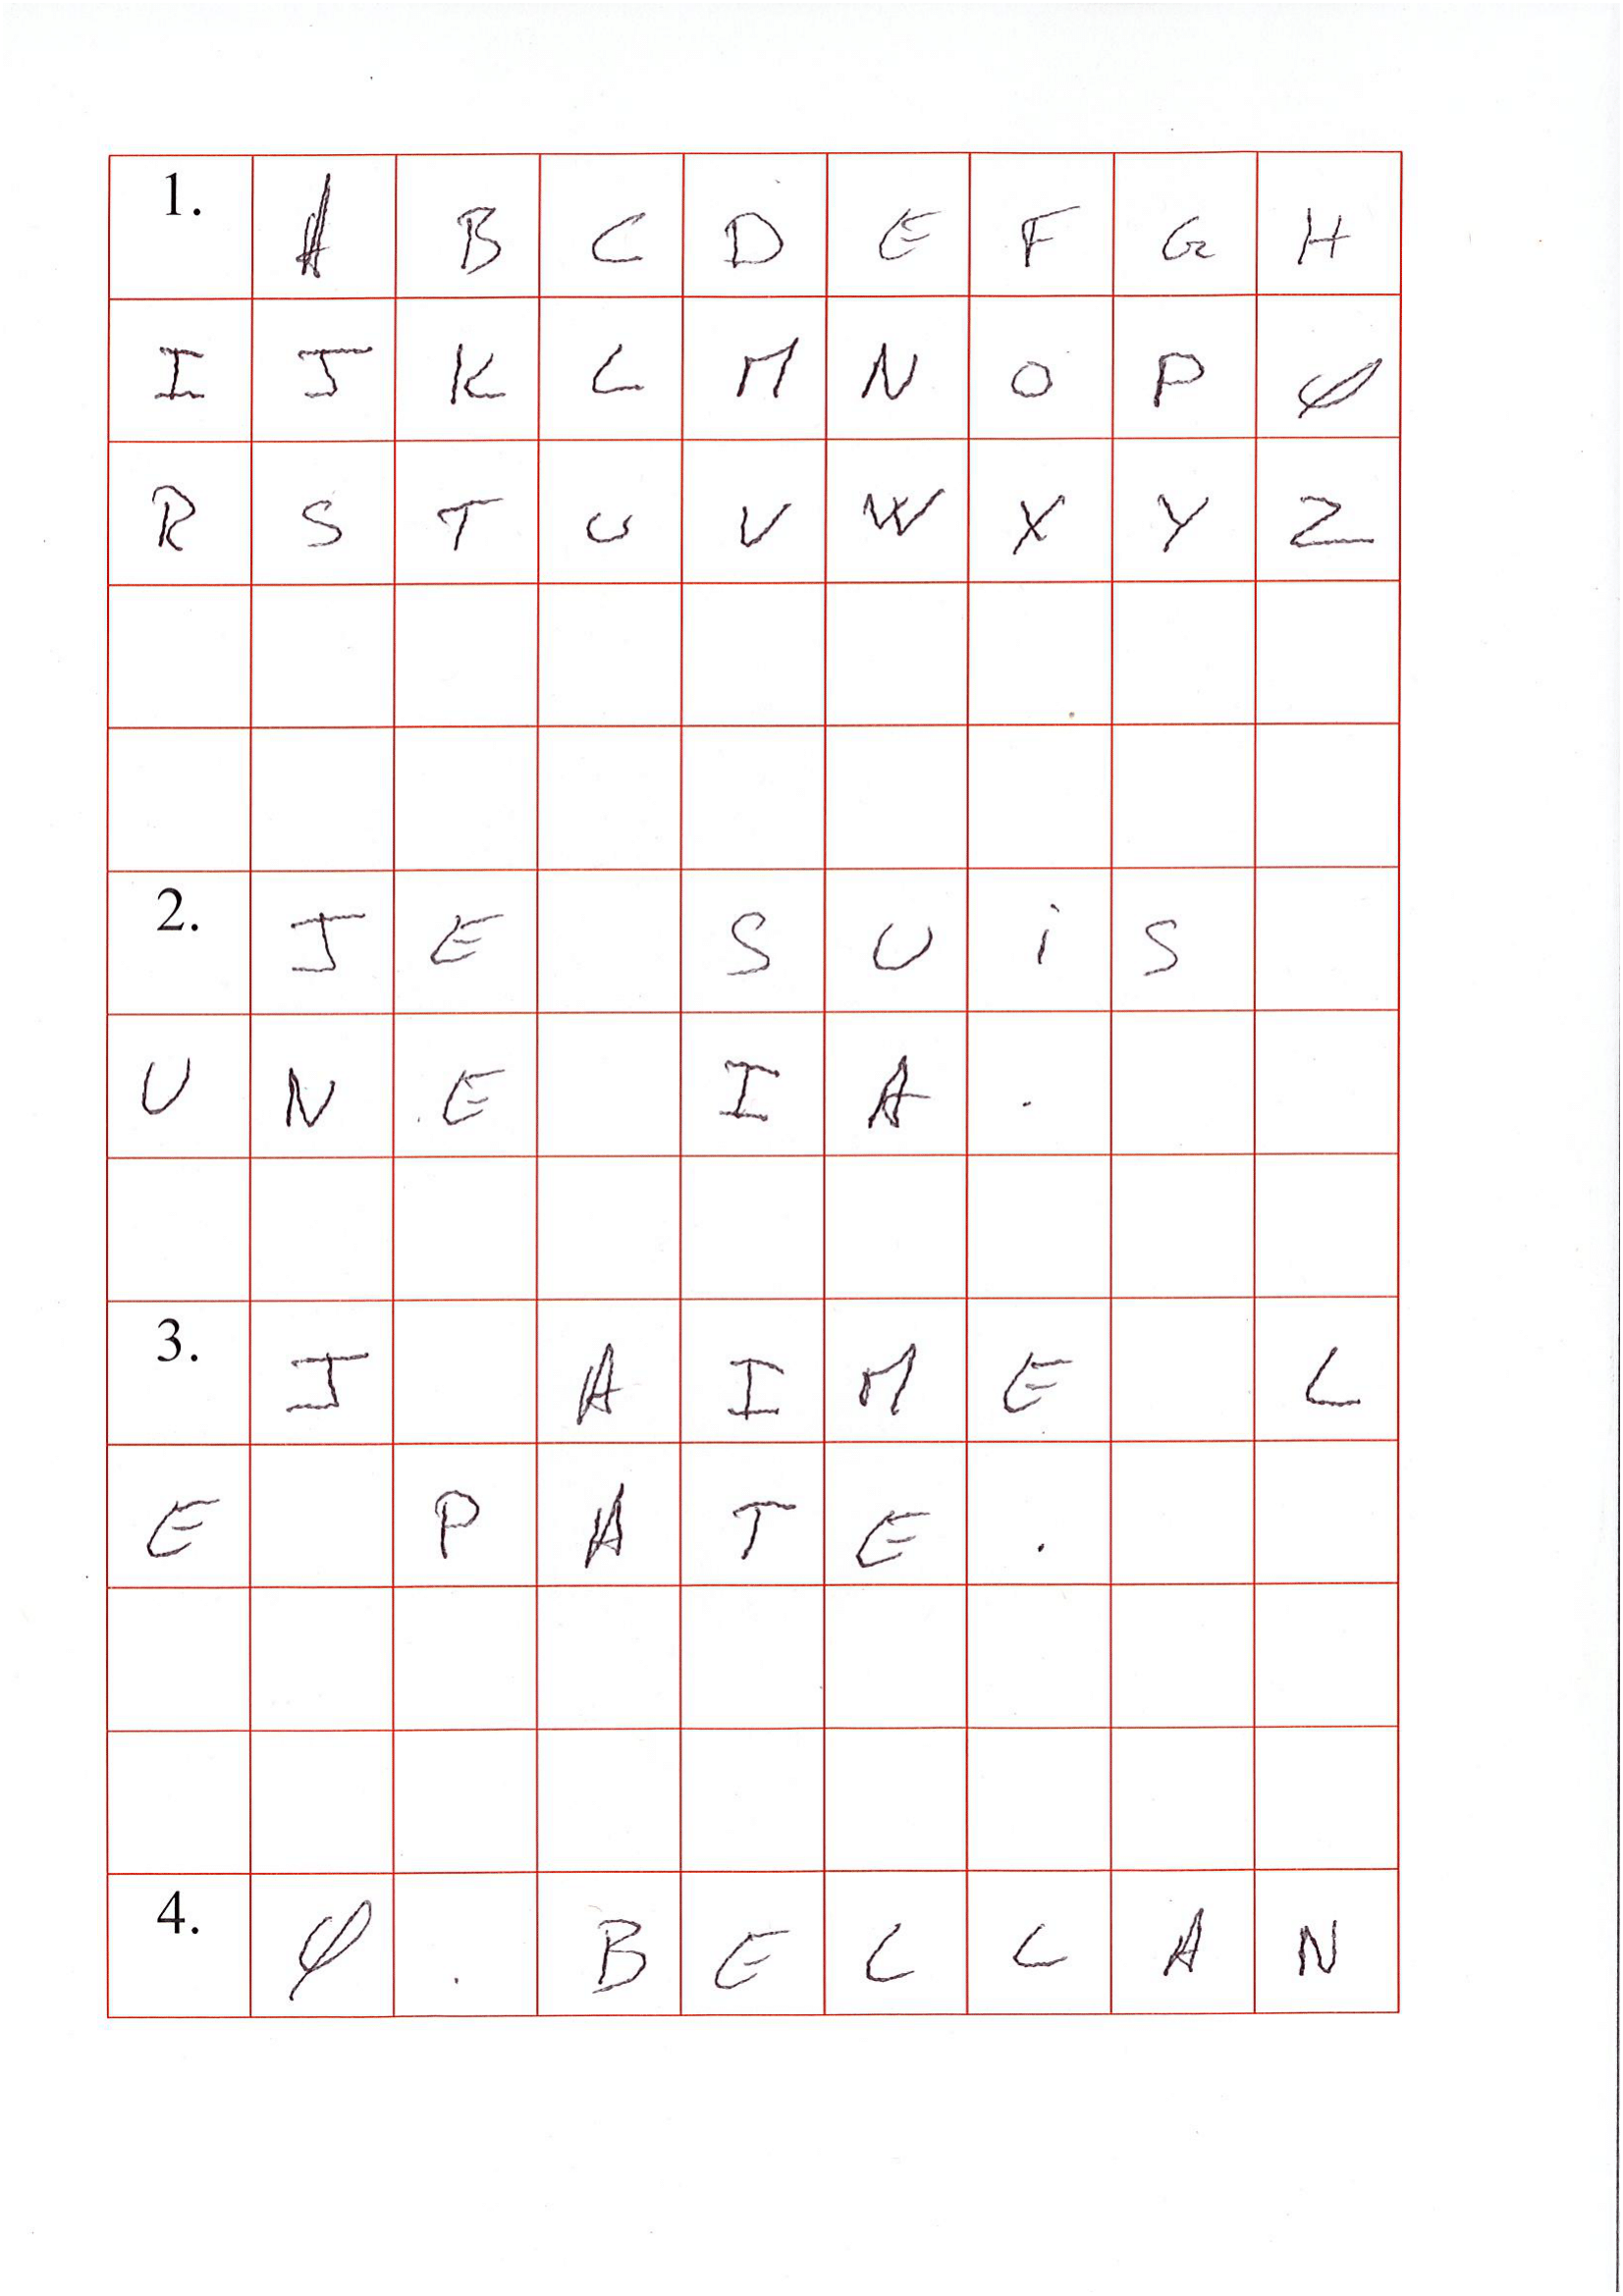 1. A B C D E F G H
I J K L M N O P Q
R S T U V W X Y Z
2. J E S U i S
U N E I A .
3. J A I M E L
E P A T E .
4. Q . B E L L A N